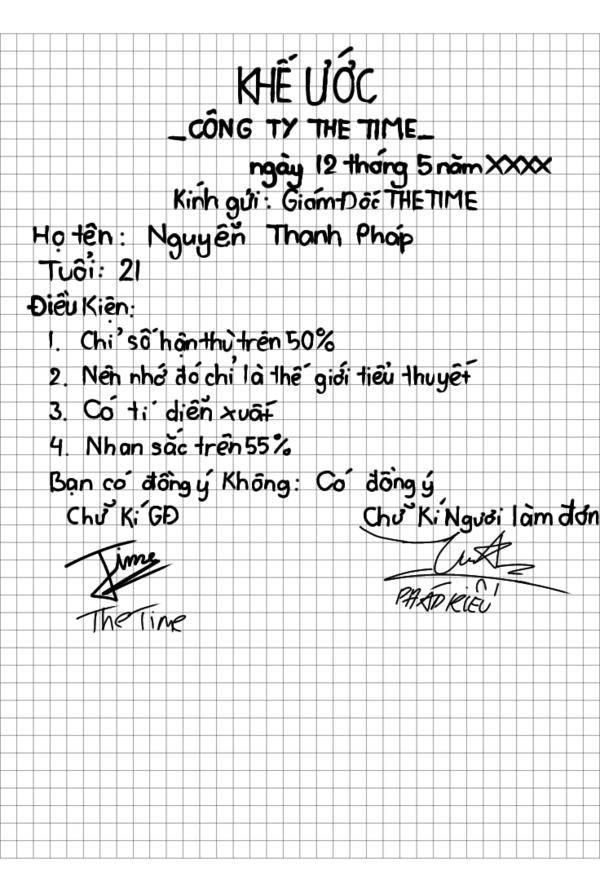 KHẾ ƯỚC
_CÔNG TY THE TIME_
ngày 12 tháng 5 năm XXXX
Kính gửi: Giám Đốc THE TIME
Họ tên: Nguyễn Thanh Pháp
Tuổi: 21
Điều Kiện:
1. Chỉ số hận thù trên 50%
2. Nên nhớ đó chỉ là thế giới tiểu thuyết
3. Có tí diễn xuất
4. Nhan sắc trên 55%
Bạn có đồng ý Không: Có đồng ý
Chữ Kí GĐ Chữ Kí Người làm đơn
Time
The Time PHÁP KIỀU